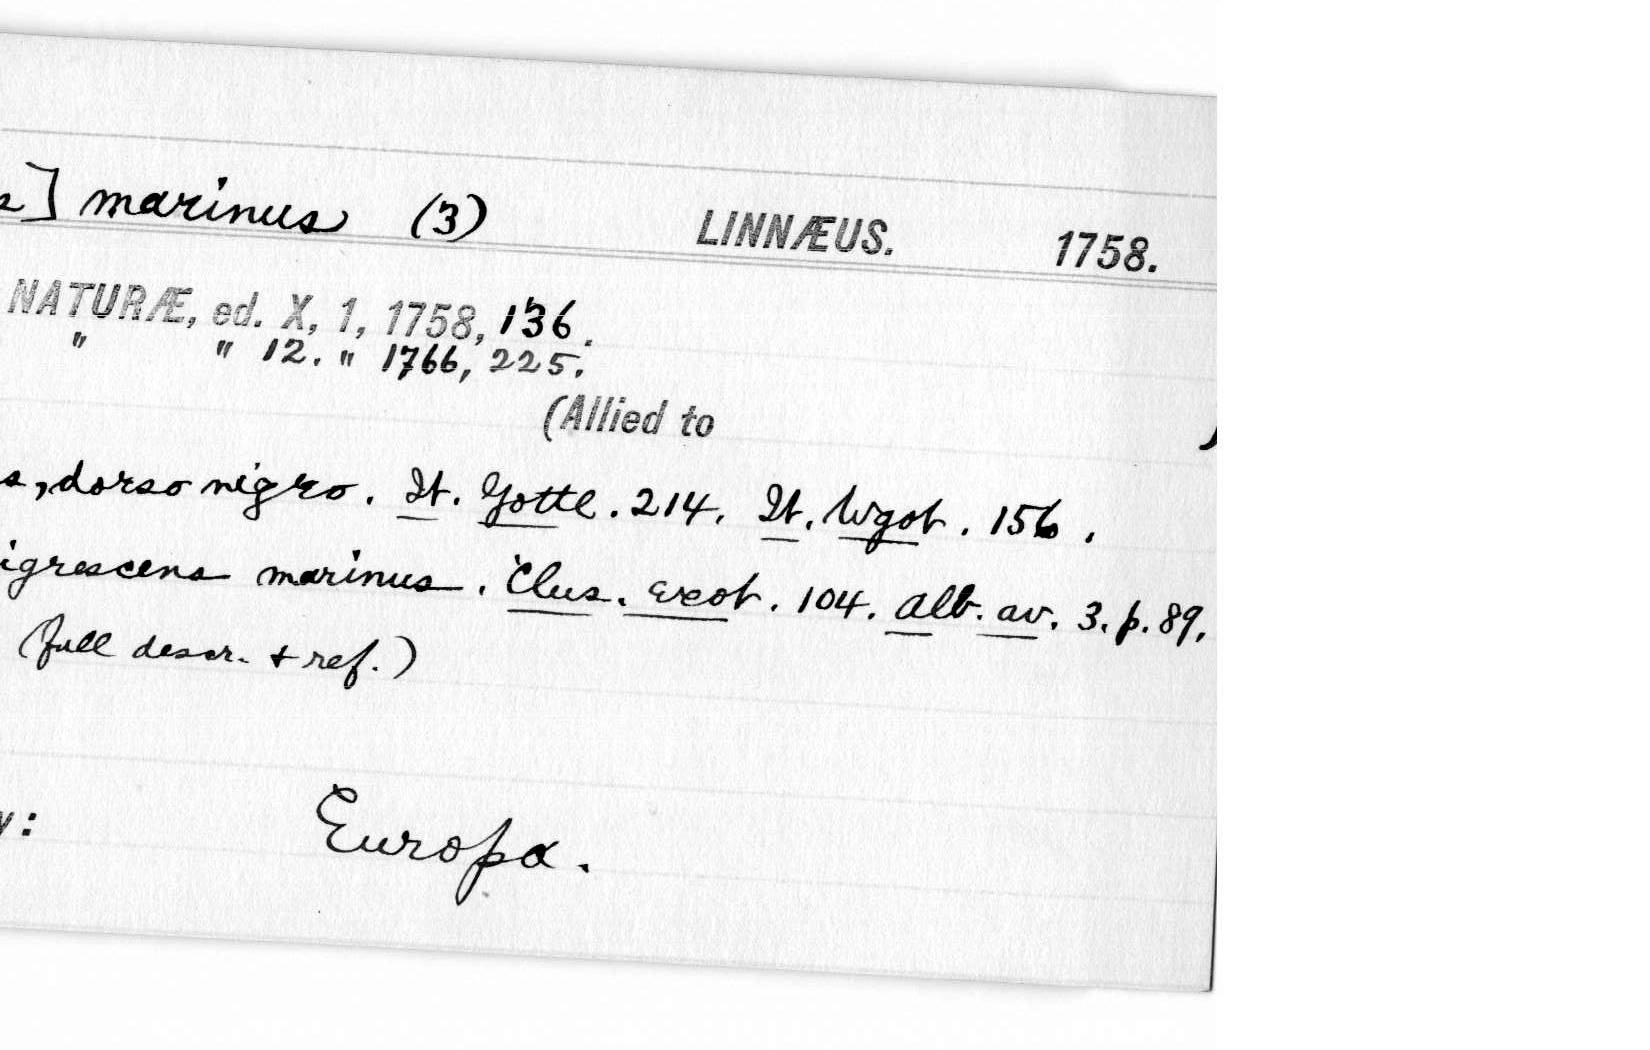 s] marinus (3) LINNÆUS. 1758.
NATURÆ, ed. X, 1, 1758, 136.
" " 12. " 1766, 225.
(Allied to )
s, dorso nigro. It. Gottl. 214. It. Wgot. 156.
igrescens marinus. Clus. exot. 104. Alb. av. 3. p. 89.
(full descr. + ref.)
y: Europa.